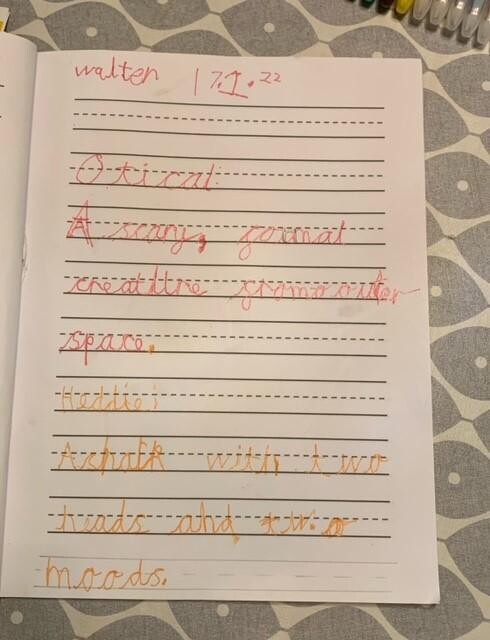 walter 17.1.22
Otical:
A scary, formal
creatture from outer
space.
Heddie:
A shark with two
heads and two
moods.